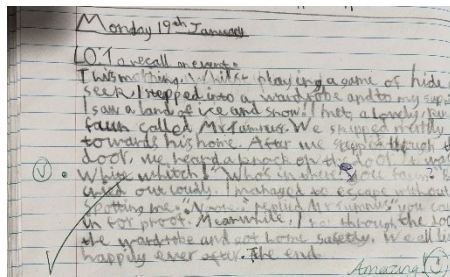 Monday 19th January
LO: To recall an event.
This morning, whilst playing a game of hide
seek I stepped into a wardrobe and to my
I saw a land of ice and snow. I met a lovely,
faun called Mr Tumnus. We skipped merrily
towards his home. After we stepped through
door, we heard a knock on the door. It was
White whitch! "Who's in there you faun?"
out loudly. I managed to escape without
spotting me. replied Mr Tumnus" you
in for proof. Meanwhile, I through the
the wardrobe and got home safetly. We all
happily ever after. The end.
Amazing